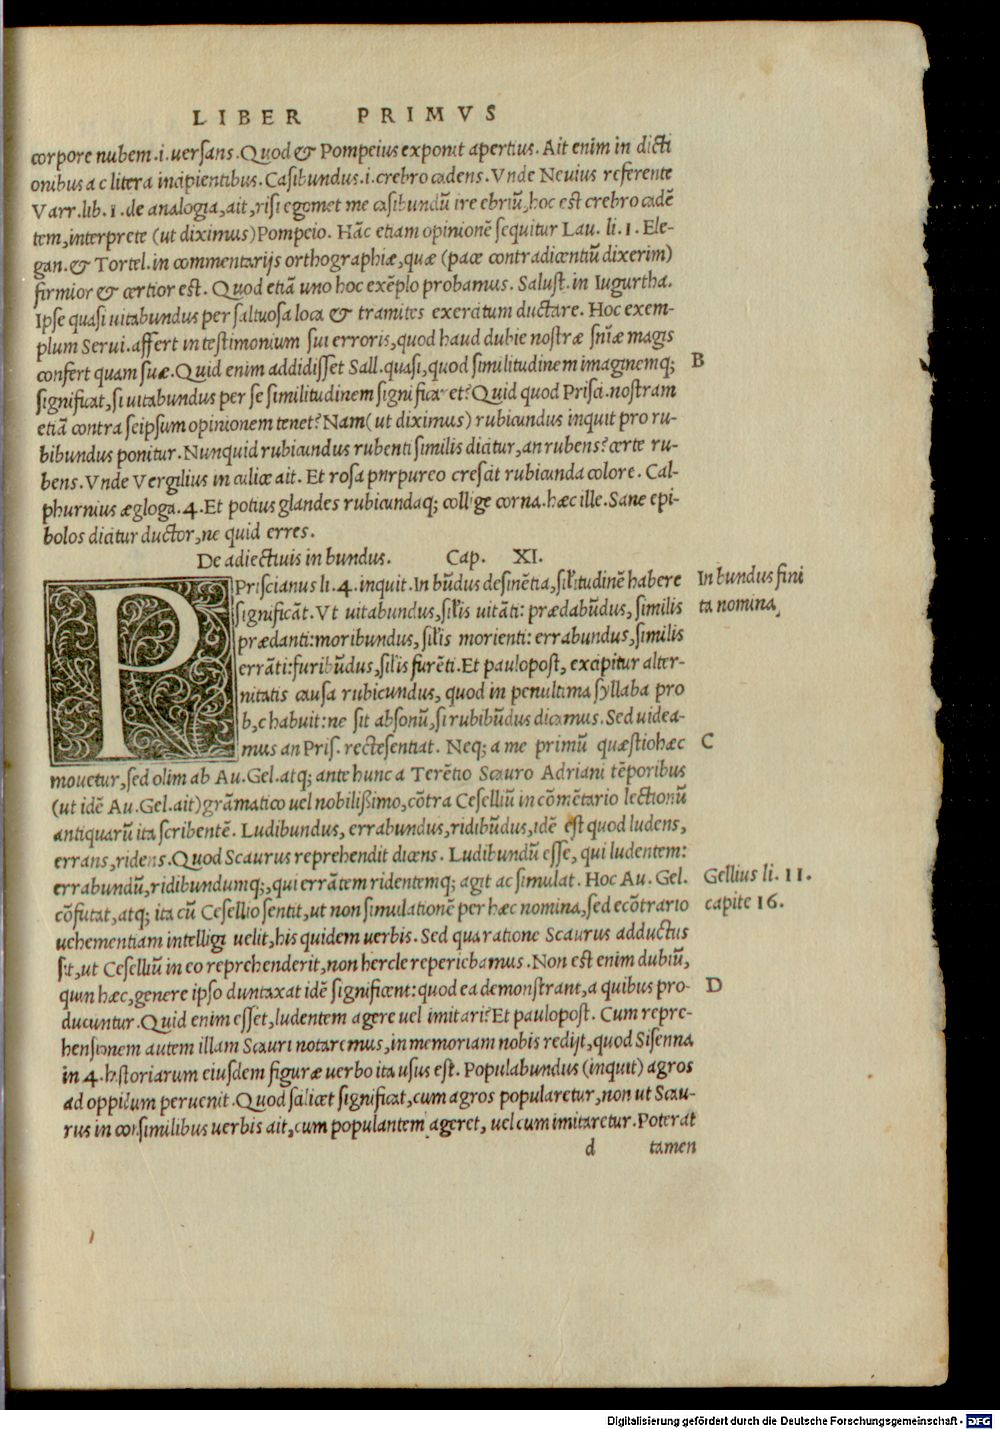 LIBER PRIMVS
corpore nubem .i. uersans. Quod & Pompeius exponit apertius. Ait enim in dicti
onibus a c litera incipientibus. Casibundus .i. crebro cadens. Vnde Neuius referente
Varr. lib. 1. de analogia, ait, risi egomet me casibundũ ire ebriũ, hoc est crebro cadẽ
tem, interprete (ut diximus) Pompeio. Hãc etiam opinionẽ sequitur Lau. li. 1. Ele-
gan. & Tortel. in commentarijs orthographiæ, quæ (pace contradicentiũ dixerim)
firmior & certior est. Quod etiã uno hoc exẽplo probamus. Salust. in Iugurtha.
Ipse quasi uitabundus per saltuosa loca & tramites exercitum ductare. Hoc exem-
plum Serui. affert in testimonium sui erroris, quod haud dubie nostræ sñiæ magis
confert quam suæ. Quid enim addidisset Sall. quasi, quod similitudinem imaginemq;
B
significat, si uitabundus per se similitudinem significaret? Quid quod Prisci. nostram
etiã contra seipsum opinionem tenet? Nam (ut diximus) rubicundus inquit pro ru-
bibundus ponitur. Nunquid rubicundus rubenti similis dicitur, an rubens? certe ru-
bens. Vnde Vergilius in culice ait. Et rosa pnrpureo crescit rubicunda colore. Cal-
phurnius ægloga. 4. Et potius glandes rubicundaq; collige corna. hæc ille. Sane epi-
bolos dicitur ductor, ne quid erres.
De adiectiuis in bundus. Cap. XI.
PPriscianus li. 4. inquit. In bũdus desinẽtia, siłitudinẽ habere
In bundus fini
significãt. Vt uitabundus, siłis uitãti: prædabũdus, similis
ta nomina,
prædanti: moribundus, siłis morienti: errabundus, similis
errãti: furibũdus, siłis furẽti. Et paulopost, excipitur alter-
nitatis causa rubicundus, quod in penultima syllaba pro
b, c habuit: ne sit absonũ, si rubibũdus dicamus. Sed uidea-
mus an Pris. recte sentiat. Neq; a me primũ quæstio hæc
C
mouetur, sed olim ab Au. Gel. atq; ante hunc a Terẽtio Scauro Adriani tẽporibus
(ut idẽ Au. Gel. ait) grãmatico uel nobilißimo, cõtra Cesелliũ in cõmẽtario lectionũ
antiquarũ ita scribentẽ. Ludibundus, errabundus, ridibũdus, idẽ est quod ludens,
errans, ridens. Quod Scaurus reprehendit dicens. Ludibundũ esse, qui ludentem:
errabundũ, ridibundumq;, qui errãtem ridentemq; agit ac simulat. Hoc Au. Gel.
Gellius li. 11.
cõfutat, atq; ita cũ Cesellio sentit, ut non simulationẽ per hæc nomina, sed ecõtrario
capite 16.
uehementiam intelligi uelit, his quidem uerbis. Sed qua ratione Scaurus adductus
sit, ut Ceselliũ in eo reprehenderit, non hercle reperiebamus. Non est enim dubiũ,
quin hæc, genere ipso duntaxat idẽ significent: quod ea demonstrant, a quibus pro-
D
ducuntur. Quid enim esset, ludentem agere uel imitari? Et paulopost. Cum repre-
hensionem autem illam Scauri notaremus, in memoriam nobis redijt, quod Sisenna
in 4. historiarum eiusdem figuræ uerbo ita usus est. Populabundus (inquit) agros
ad oppidum peruenit. Quod scilicet significat, cum agros popularetur, non ut Scau-
rus in consimilibus uerbis ait, cum populantem ageret, uel cum imitaretur. Poterat
d tamen
Digitalisierung gefördert durch die Deutsche Forschungsgemeinschaft - DFG